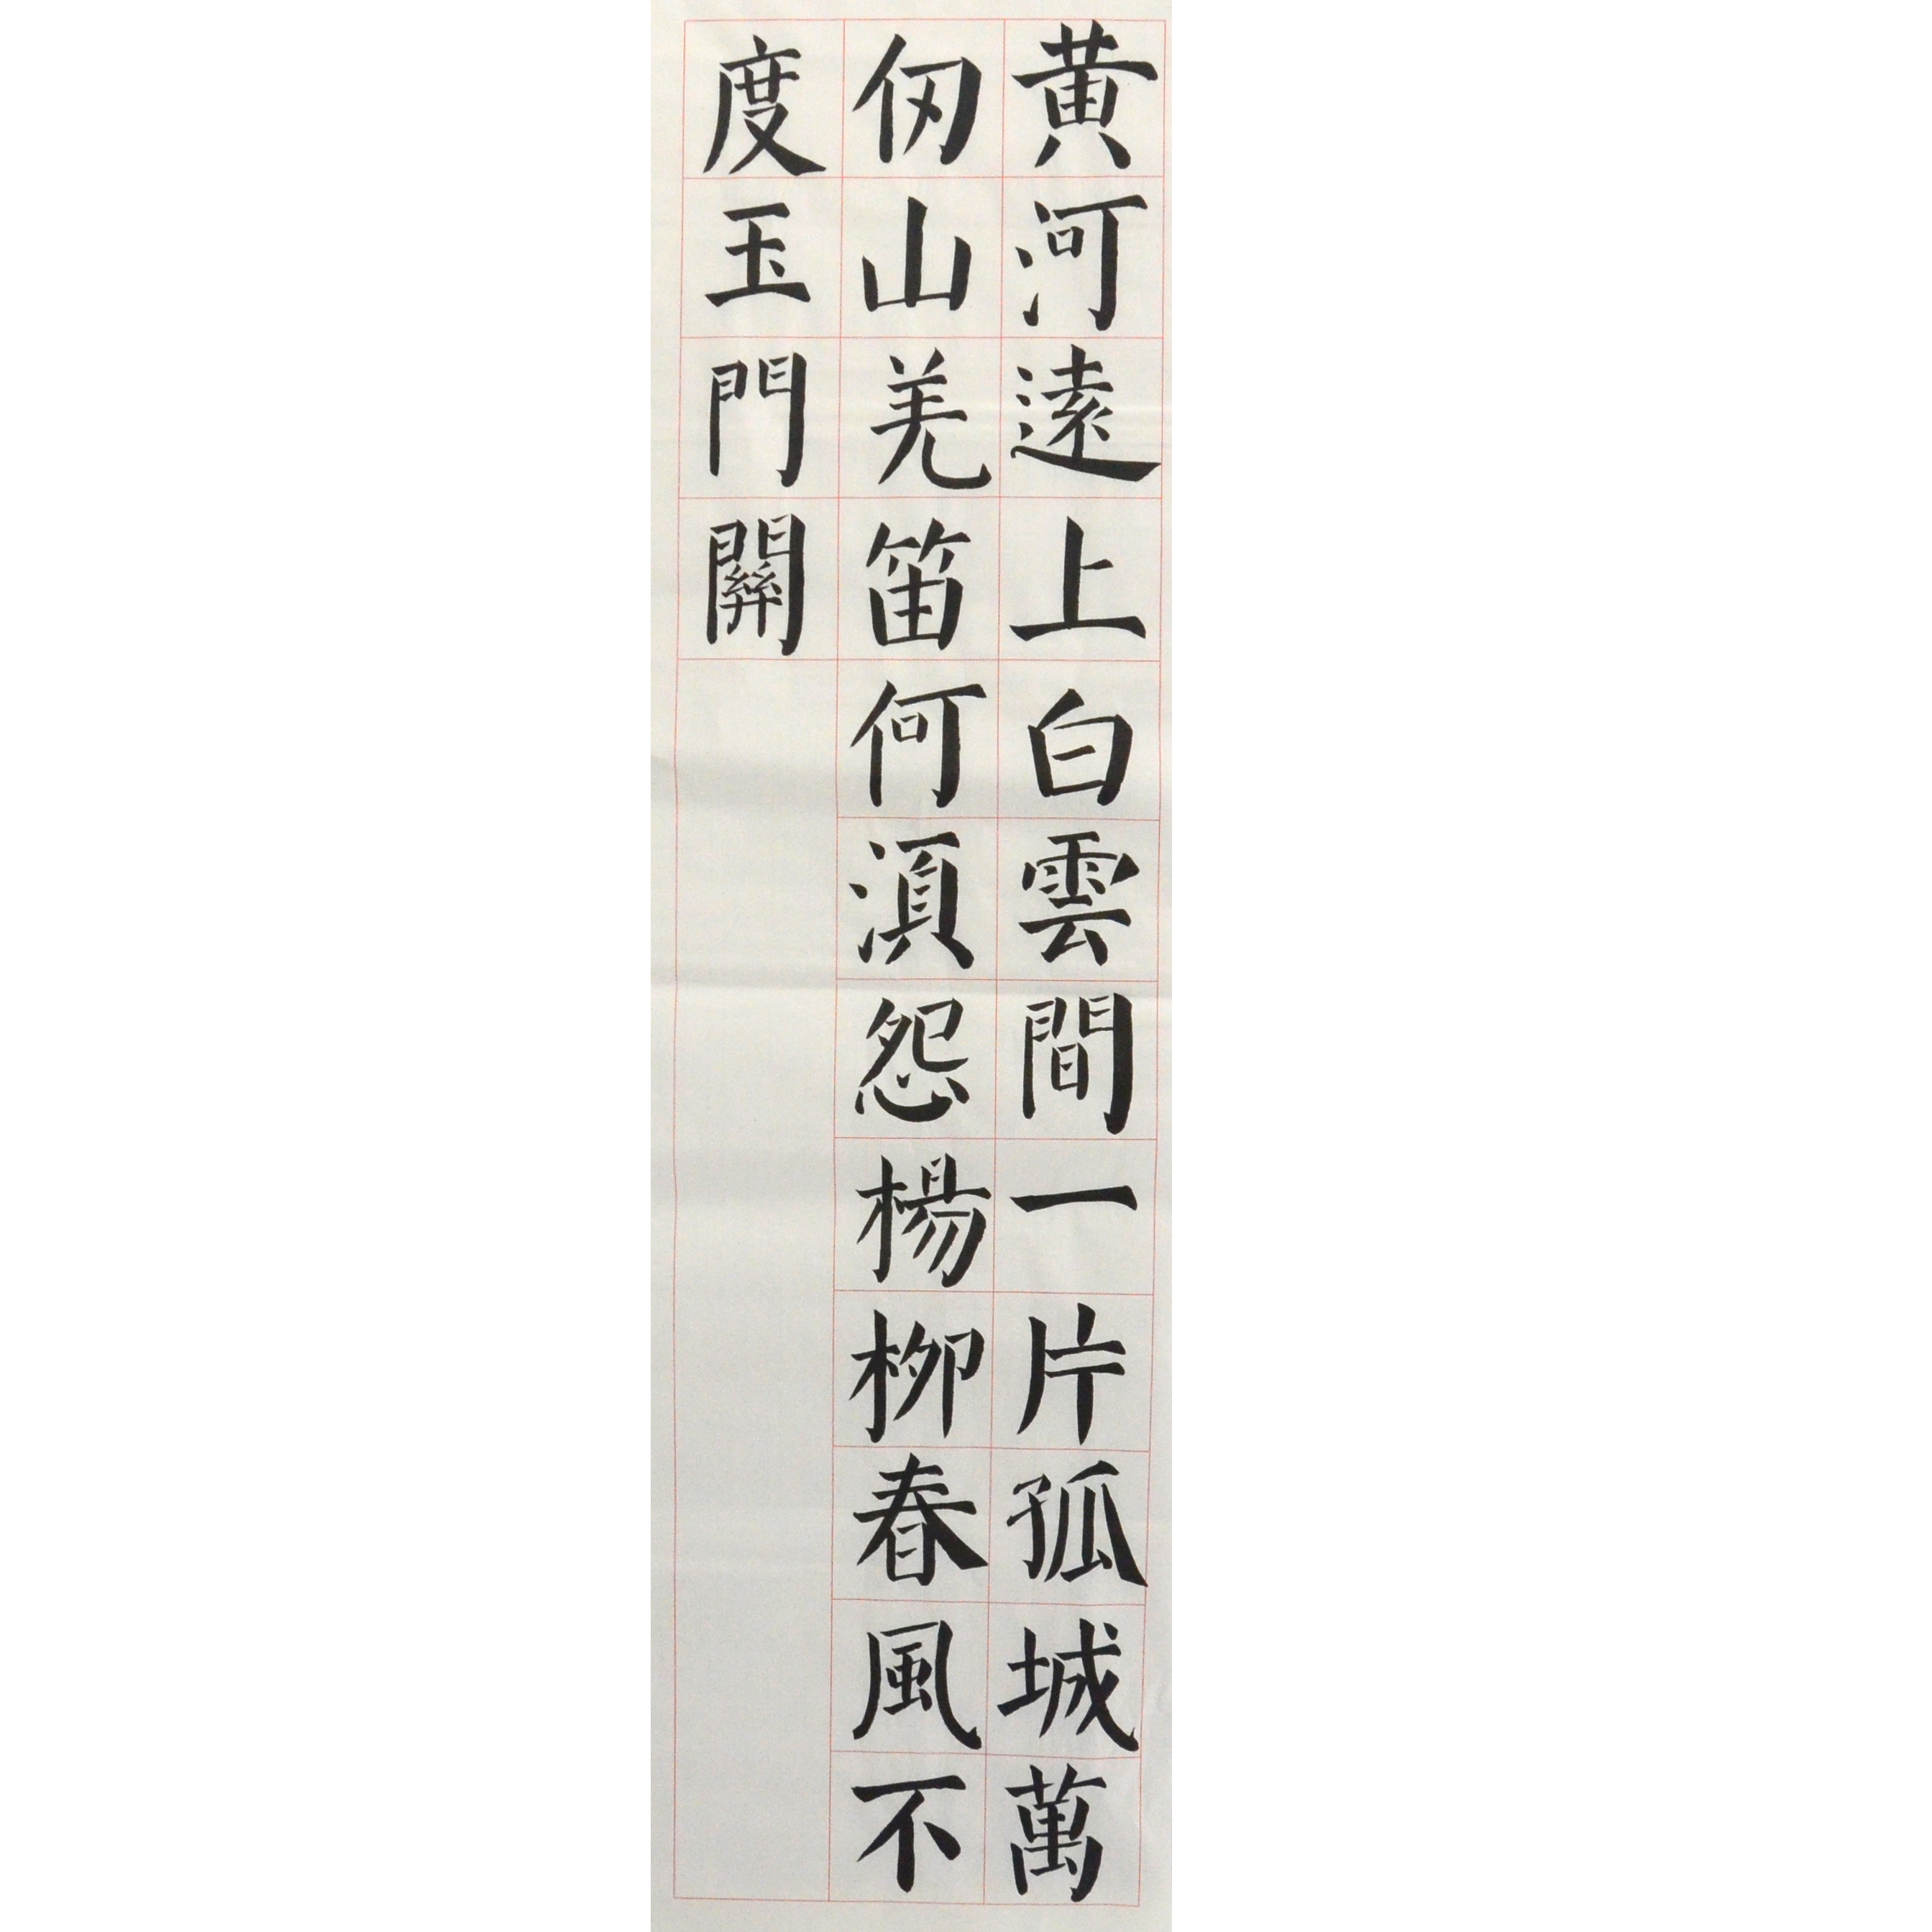 黄河遠上白雲間一片孤城萬
仞山羌笛何湏怨楊柳春風不
度玉門關